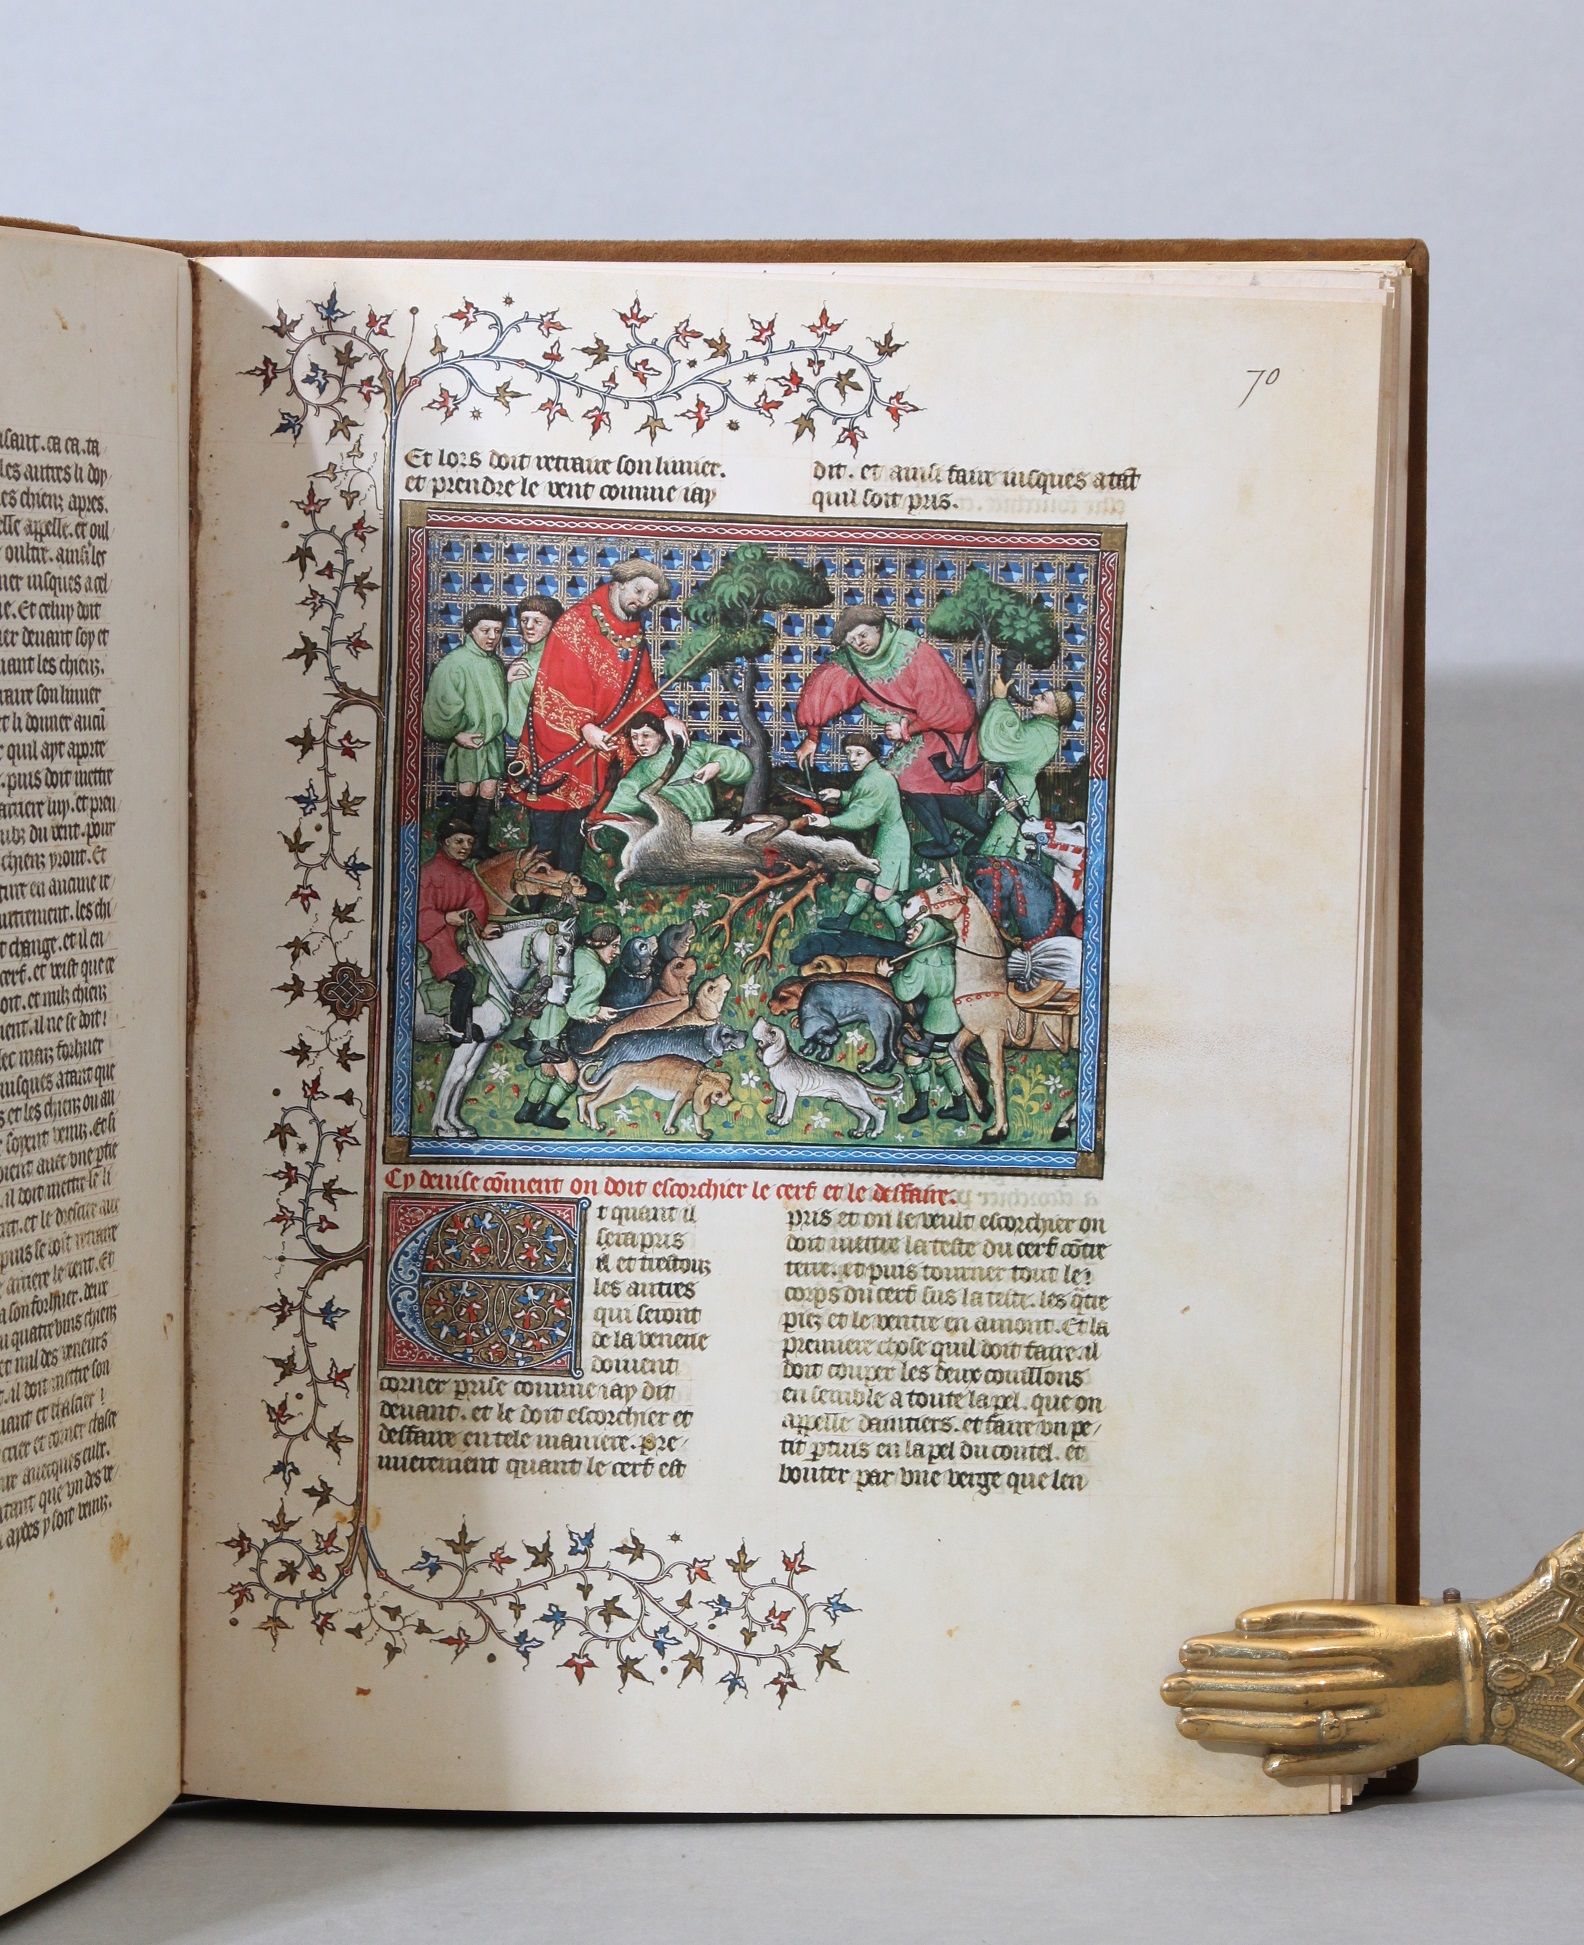 isant. ca ca. ta
les autres li doy
es chienz apres.
elle appelle. et oul
oultre. ainsi les
ner iusques a cel
ie. Et celuy doit
ier deuant soy et
uant les chienz.
raire son limier
et li donner aucū
quil ayt aporte
. puis doit mettre
arriere luy. et pren
du vent. pour
chienz yront. Et
en aucune re
. les chi
t change. et il en
cerf. et veist que ce
oit. et milz chienz
ient. il ne se doit
ec maiz forhuer
iusques atant que
s et les chienz ou au
soyent venuz. Et si
oient auec vne ptie
. il doit mettre
et le drescier aux
puis se doit retraire
arriere le vent. Et
a son forhuer. deux
u quatre vins chienz
et mil des veneurs
. il doit mettre son
et chascier
crier et corner chasce
auecques eulx.
atant que vn des ve
aydes y soit venuz.
70
Et lors doit retraire son limier.
et prendre le vent comme iay
dit. et ainsi faire iusques atāt
quil soit pris.
Cy deuise cōment on doit escorchier le cerf et le deffaire.
Et quant il
sera pris
il et trestouz
les autres
qui seront
de la venerie
doiuent
corner prise comme iay dit
deuant. et le doit escorchier et
deffaire en tele maniere. Pre
mierement quant le cerf est
pris et on le veult escorchier on
doit mettre la teste du cerf cōtre
terre. et puis tourner tout le
corps du cerf sus la teste. les q̄tre
piez et le ventre en amont. Et la
premiere chose quil doit faire. il
doit couper les deux couillons
ensemble a toute la pel. que on
appelle daintiers. et faire vn pe
tit ptuis en la pel du coutel. et
bouter par vne verge que len